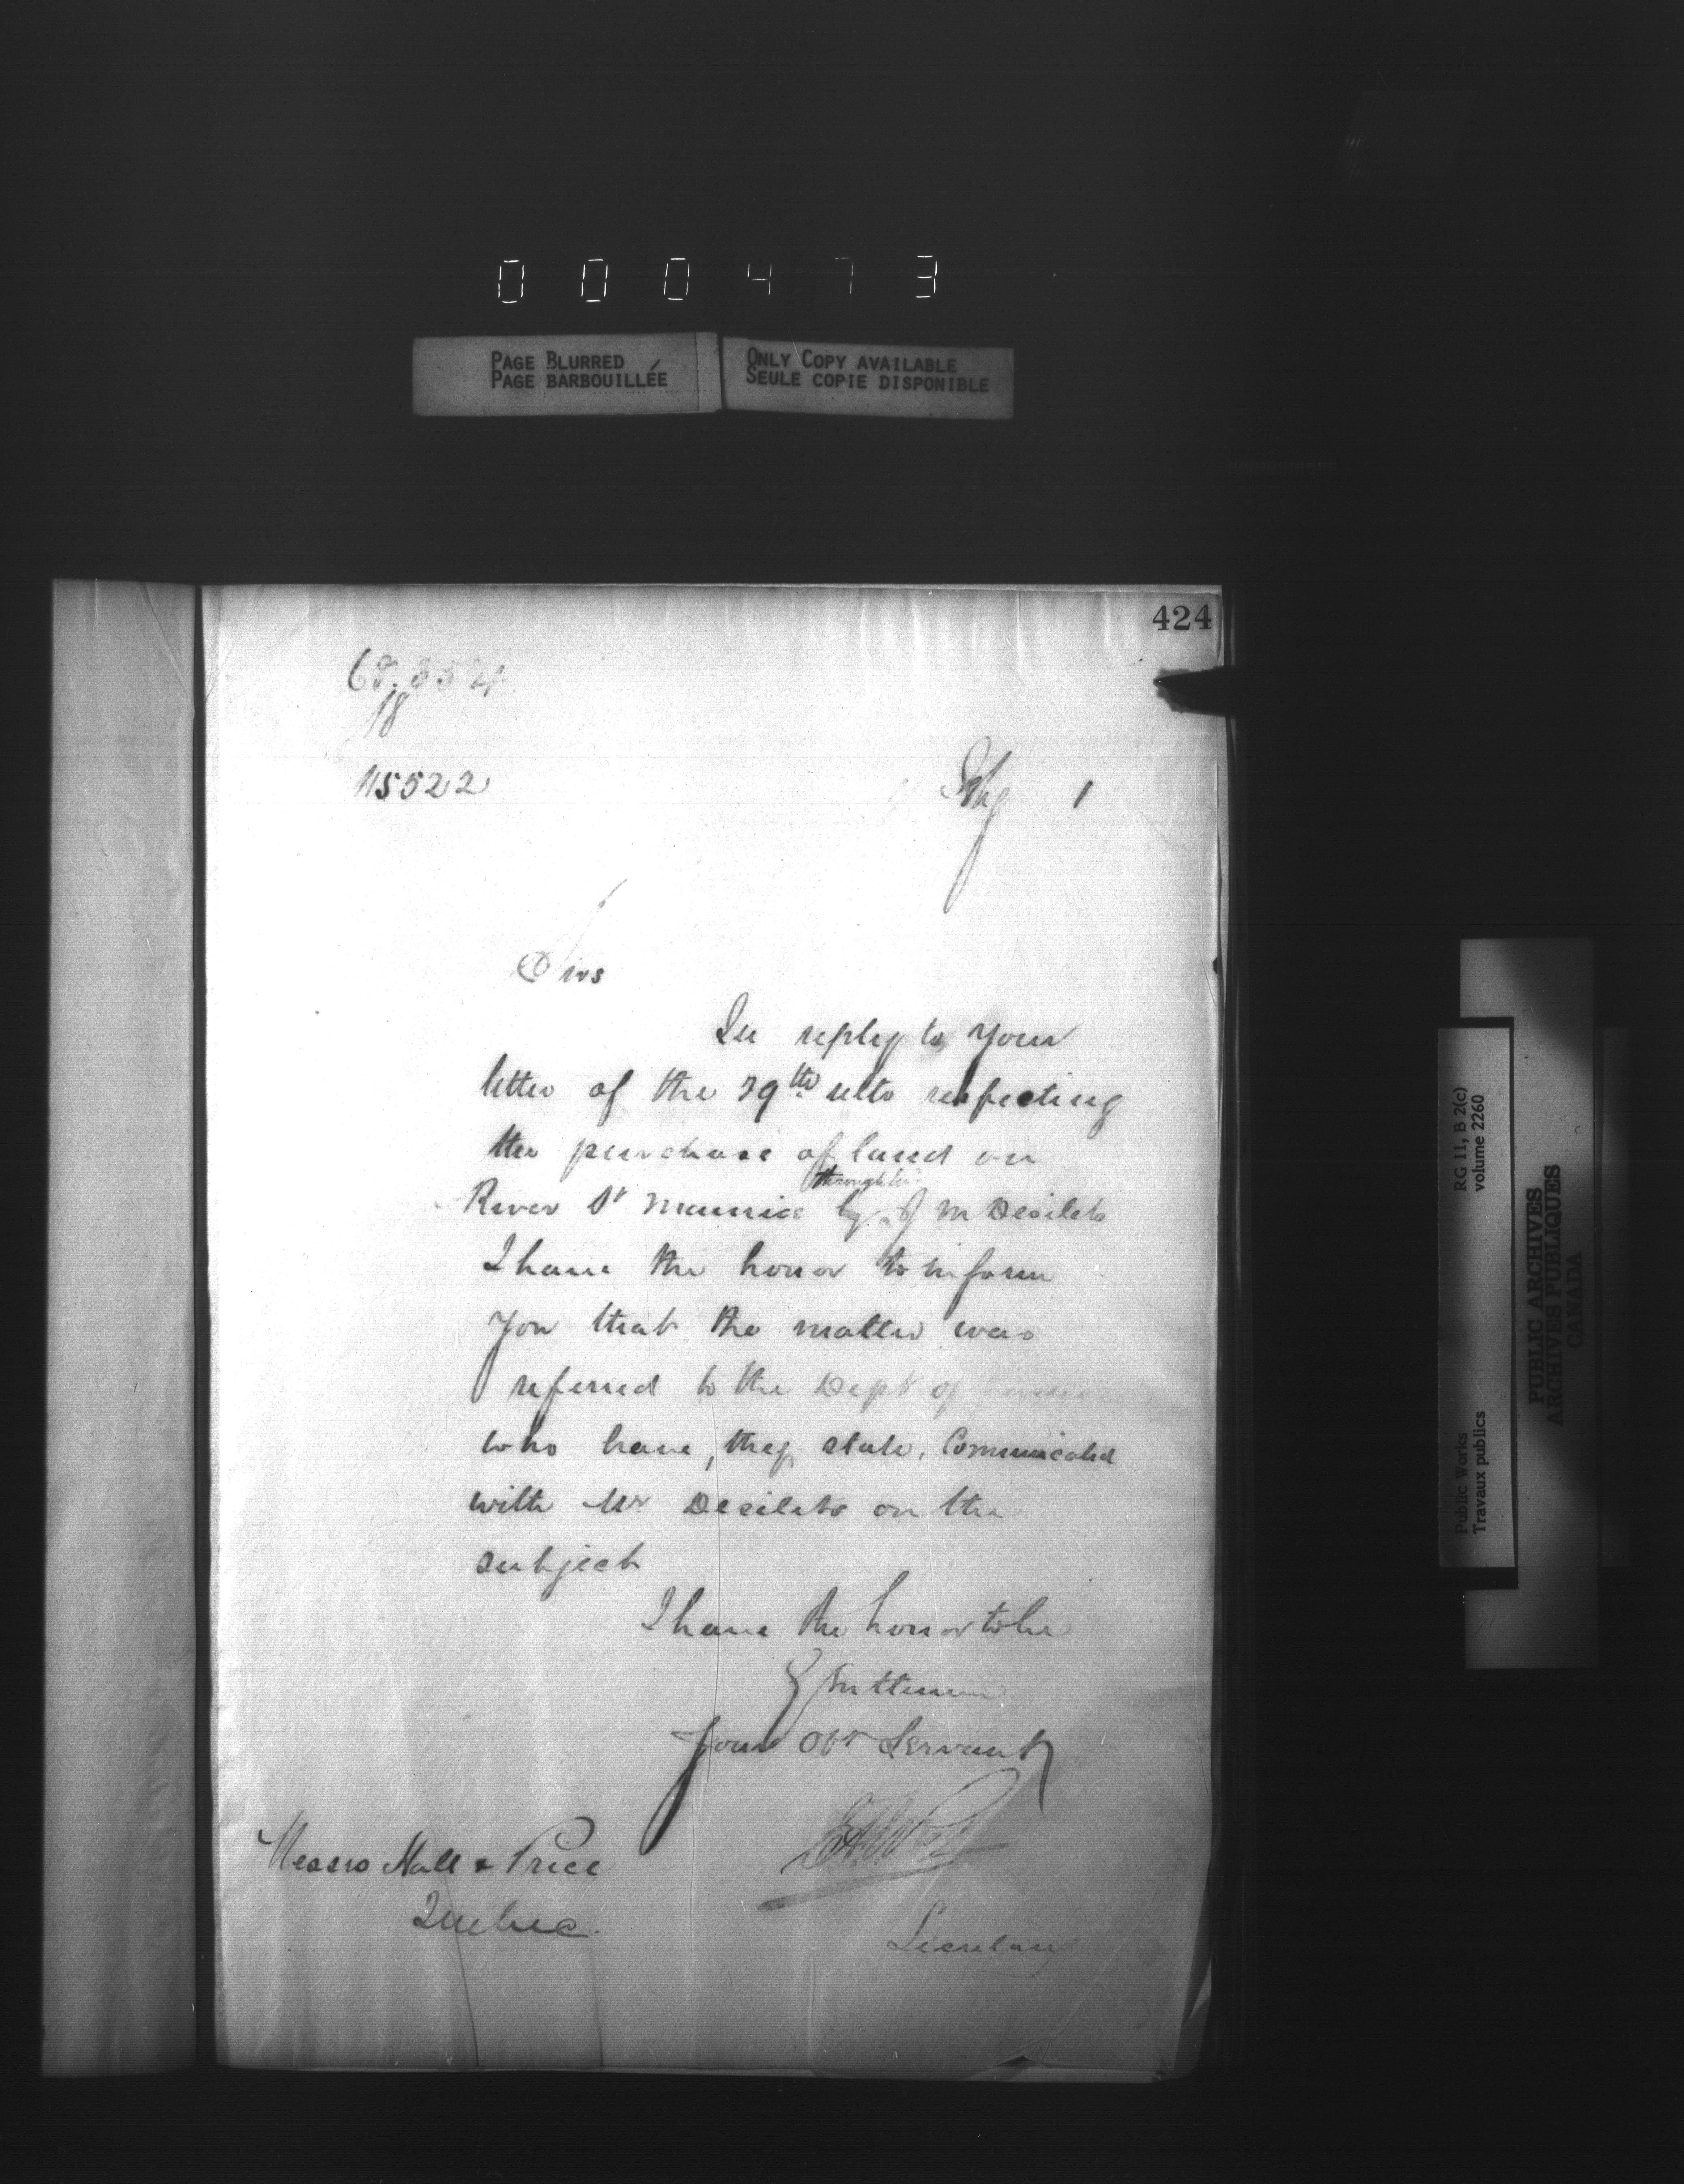 000473
PAGE BLURRED
PAGE BARBOUILLÉE
ONLY COPY AVAILABLE
SEULE COPIE DISPONIBLE
424
18
115522
1
Sirs
In reply to your
letter of the 29th ulto respecting
the purchase of land on
River St Maurice by through J M Desilets
I have the honor to inform
you that the matter was
referred to the Dept of
who have, they state, Communicated
with Mr Desilets on the
subject
I have the honor to be
Gentlemen
Your Obt Servant
Messrs Hall & Price
Quebec
Secretary
RG 11, B 2(c)
volume 2260
Public Works
Travaux publics
PUBLIC ARCHIVES
ARCHIVES PUBLIQUES
CANADA